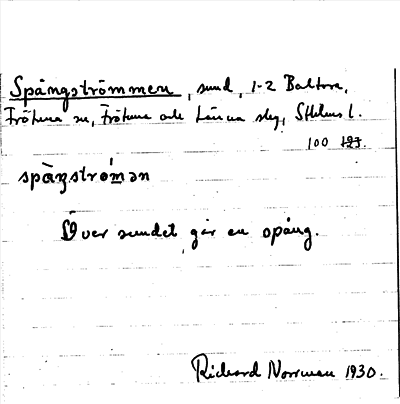 Spångströmmen, sund, 1-2 Baltora,
Frötuna sn, Frötuna och Länna slg, Sthlms l.
100 127.
spàŋströ́mən
Över sundet går en spång.
Richard Norrman 1930.